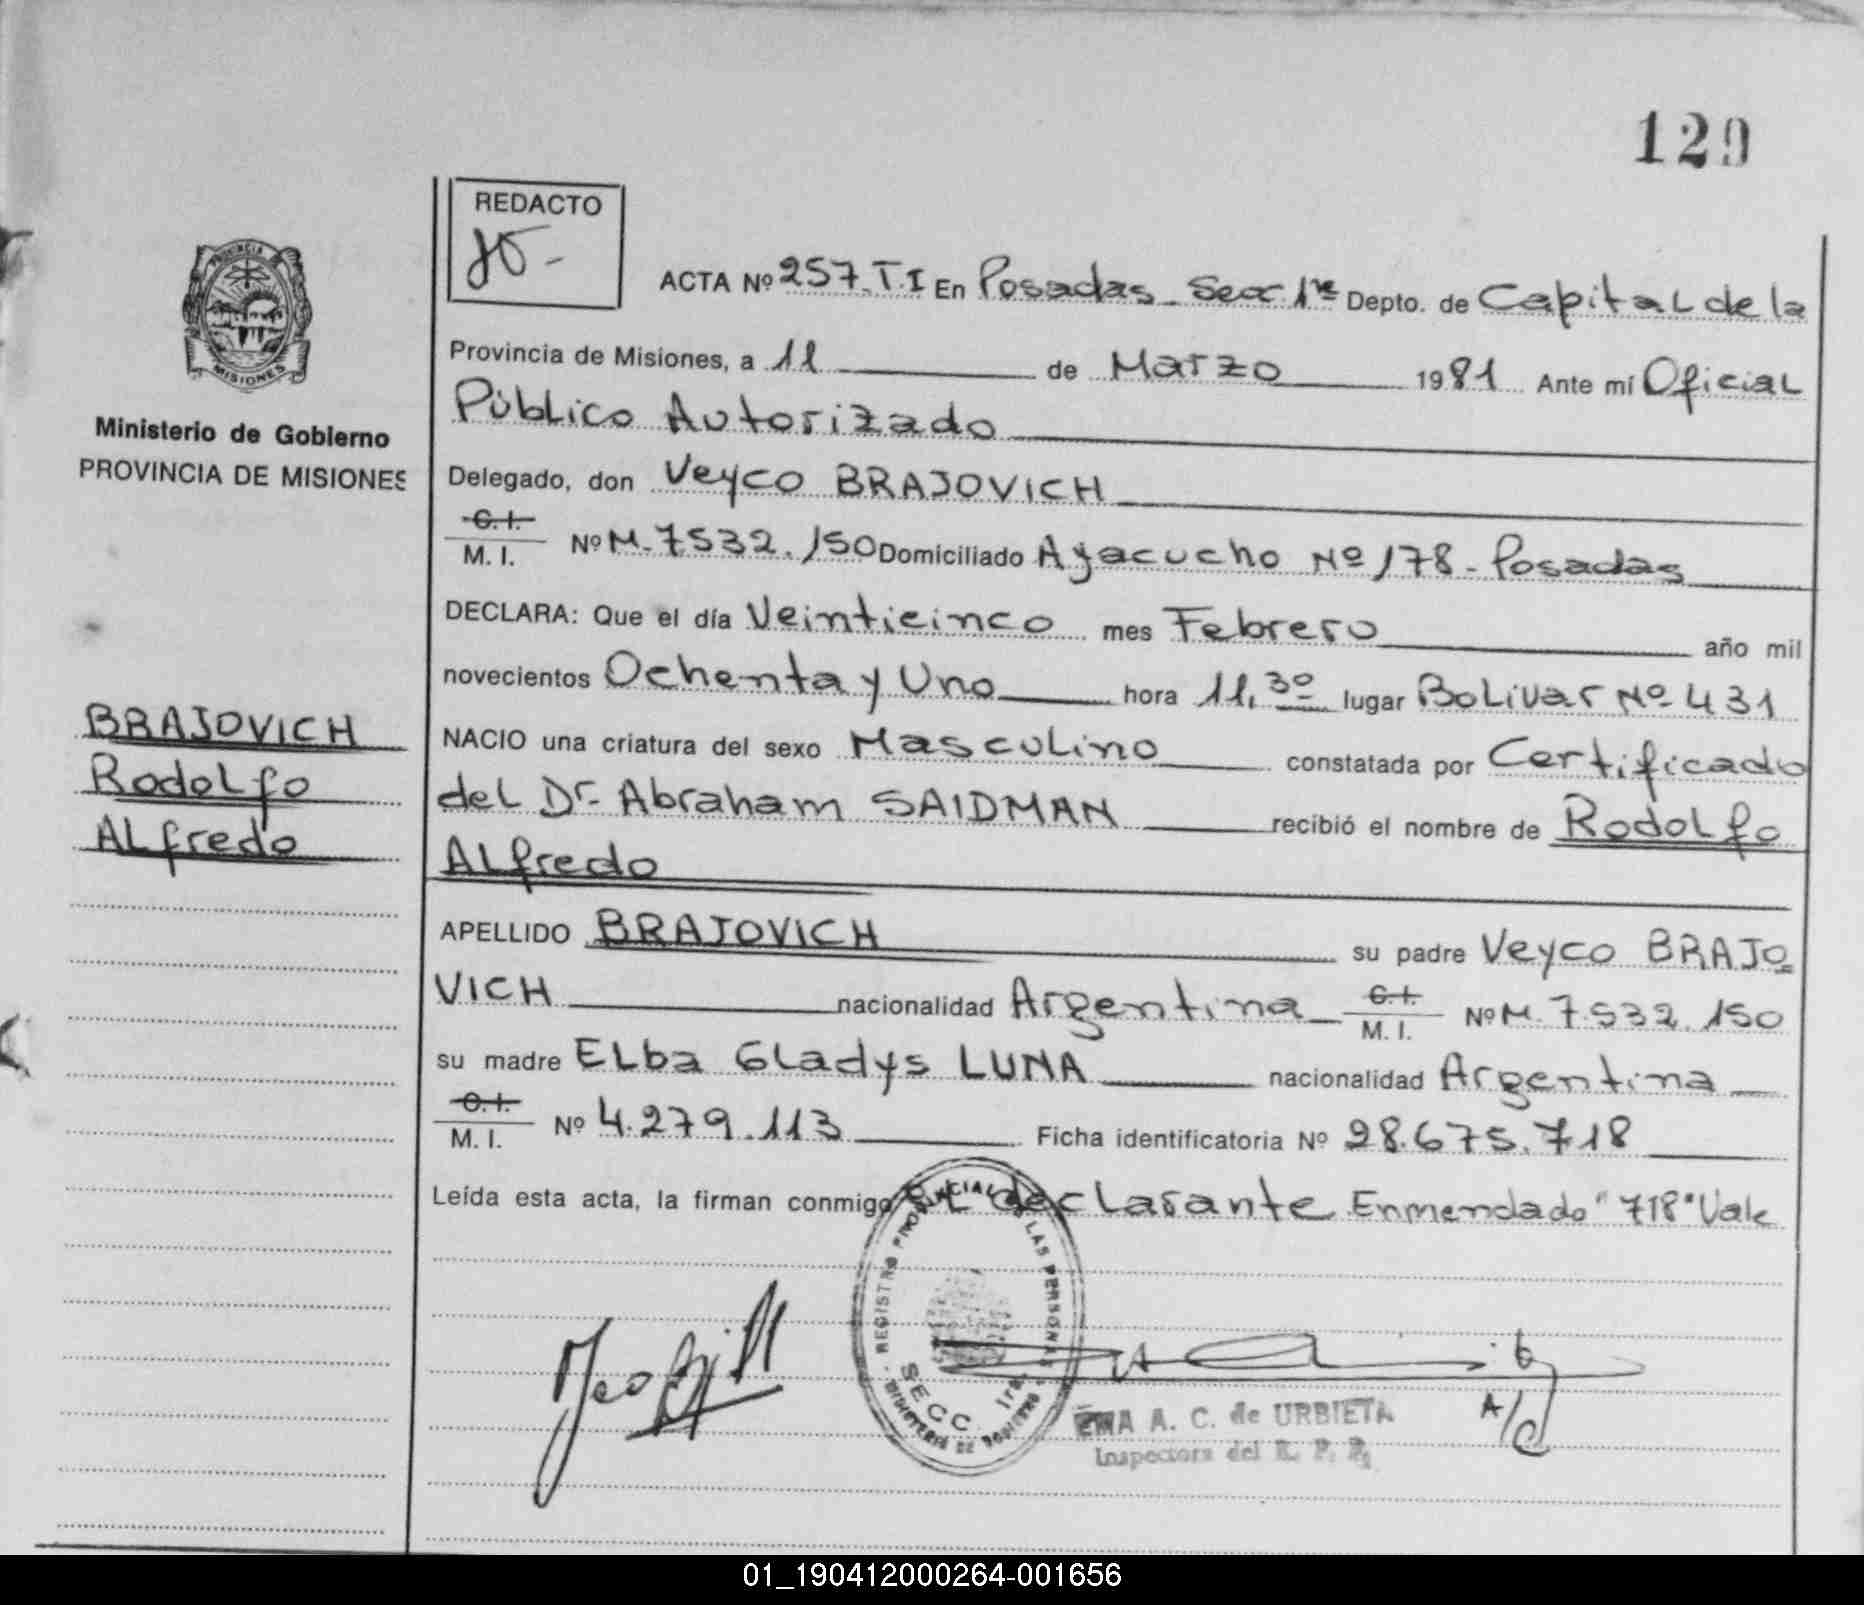 129
REDACTO
PROVINCIA
MISIONES
Ministerio de Gobierno
PROVINCIA DE MISIONES
BRAJOVICH
Rodolfo
Alfredo
ACTA Nº 257.T.I En Posadas - Secc. 1ra Depto. de Capital de la
Provincia de Misiones, a 11 de Marzo 1981 Ante mí Oficial
Público Autorizado
Delegado, don Veyco BRAJOVICH
C.I.
M. I. Nº M. 7.532.150 Domiciliado Ayacucho Nº 178 - Posadas
DECLARA: Que el día Veinticinco mes Febrero año mil
novecientos Ochenta y Uno hora 11,30 lugar Bolivar Nº 431
NACIO una criatura del sexo Masculino constatada por Certificado
del Dr. Abraham SAIDMAN recibió el nombre de Rodolfo
Alfredo
APELLIDO BRAJOVICH su padre Veyco BRAJO=
VICH nacionalidad Argentina C.I.
M. I. Nº M. 7.532.150
su madre Elba Gladys LUNA nacionalidad Argentina
C.I.
M. I. Nº 4.279.113 Ficha identificatoria Nº 28.675.718
Leída esta acta, la firman conmigo el declarante Enmendado "718" Vale
REGISTRO PROVINCIAL DE LAS PERSONAS
SECC. 1ra.
MINISTERIO DE GOBIERNO
EMA A. C. de URBIETA
Inspectora del R. P. P.
A/C
01_190412000264-001656